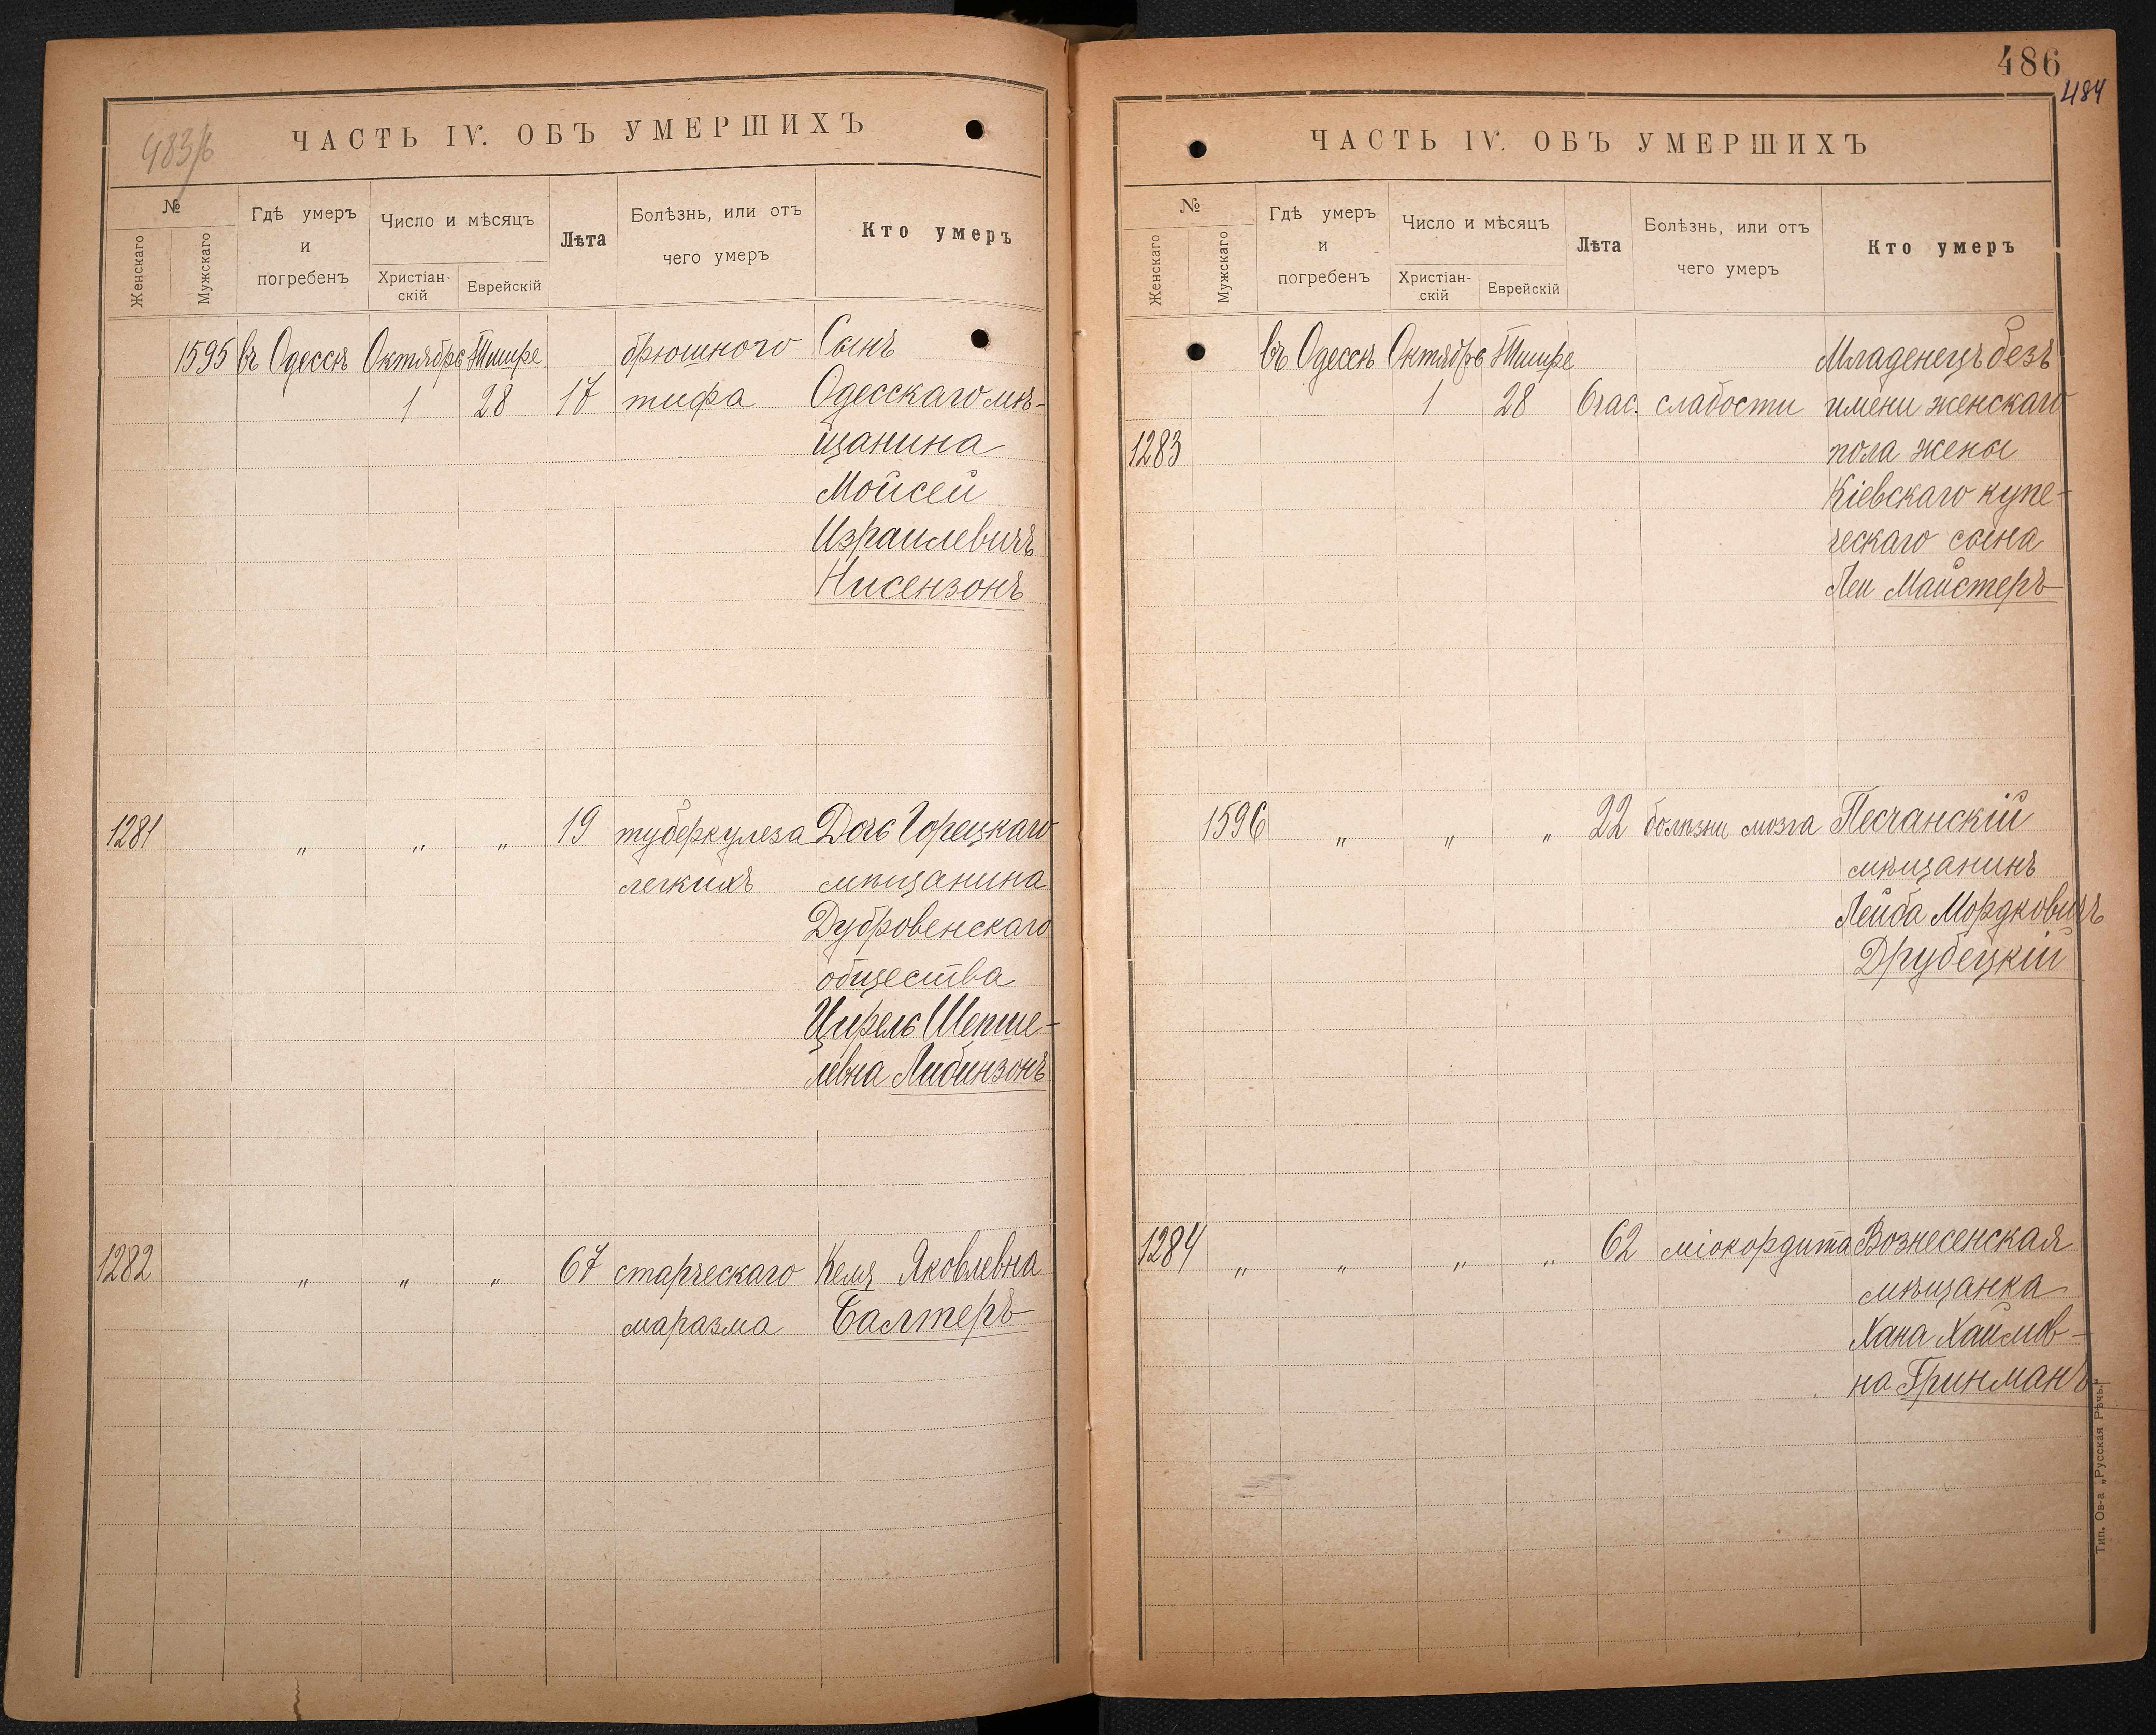 483/б
ЧАСТЬ IV. ОБЪ УМЕРШИХЪ
№
Женскаго
Мужскаго
Гдѣ умеръ
и
погребенъ
Число и мѣсяцъ
Христіан-
скій
Еврейскій
Лѣта
Болѣзнь, или отъ
чего умеръ
Кто умеръ
1595 въ Одессѣ Октябрь Тишре брюшного Сынъ
1 28 17 тифа Одесскаго мѣ-
щанина
Мойсей
Израилевичъ
Нисензонъ
1281 " " " 19 туберкулеза Дочь Горецкаго
легкихъ мѣщанина
Дубровенскаго
общества
Цирель Шепше-
левна Либинзонъ
1282 " " " 67 старческаго Келя Яковлевна
маразма Балтеръ
486
484
ЧАСТЬ IV. ОБЪ УМЕРШИХЪ
№
Женскаго
Мужскаго
Гдѣ умеръ
и
погребенъ
Число и мѣсяцъ
Христіан-
скій
Еврейскій
Лѣта
Болѣзнь, или отъ
чего умеръ
Кто умеръ
въ Одессѣ Октябрь Тишре Младенецъ безъ
1 28 6 час. слабости имени женскаго
1283 пола жены
Кіевскаго купе-
ческаго сына
Леи Майстеръ
1596 " " " 22 болѣзни мозга Песчанскій
мѣщанинъ
Лейба Мордковичъ
Друбецкій
1284 " " " " 62 міокордита Вознесенская
мѣщанка
Хана Хаимов-
на Гринманъ
Тип. Ов-а „Русская Рѣчь.“